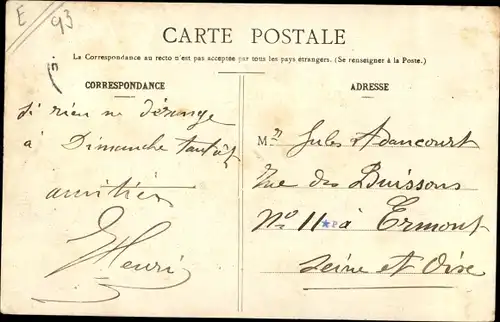 E 93
CARTE POSTALE
La Correspondance au recto n'est pas acceptée par tous les pays étrangers. (Se renseigner à la Poste.)
CORRESPONDANCE
si rien ne dérange
à Dimanche tantôt
amitiés
Henri
ADRESSE
Mr Jules Adancourt
Rue des Buissons
No 11 à Ermont
Seine et Oise